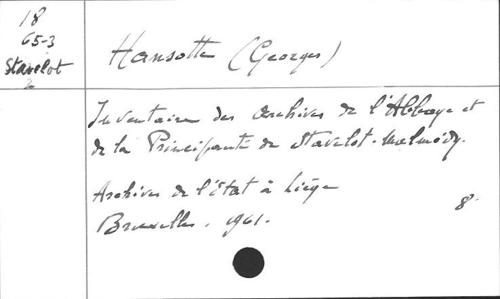 18
65-3
Stavelot
2
Hansotte (Georges)
Inventaire des Archives de l'Abbaye et
de la Principauté de Stavelot-Malmédy.
Archives de l'Etat à Liége
8°
Bruxelles, 1961.